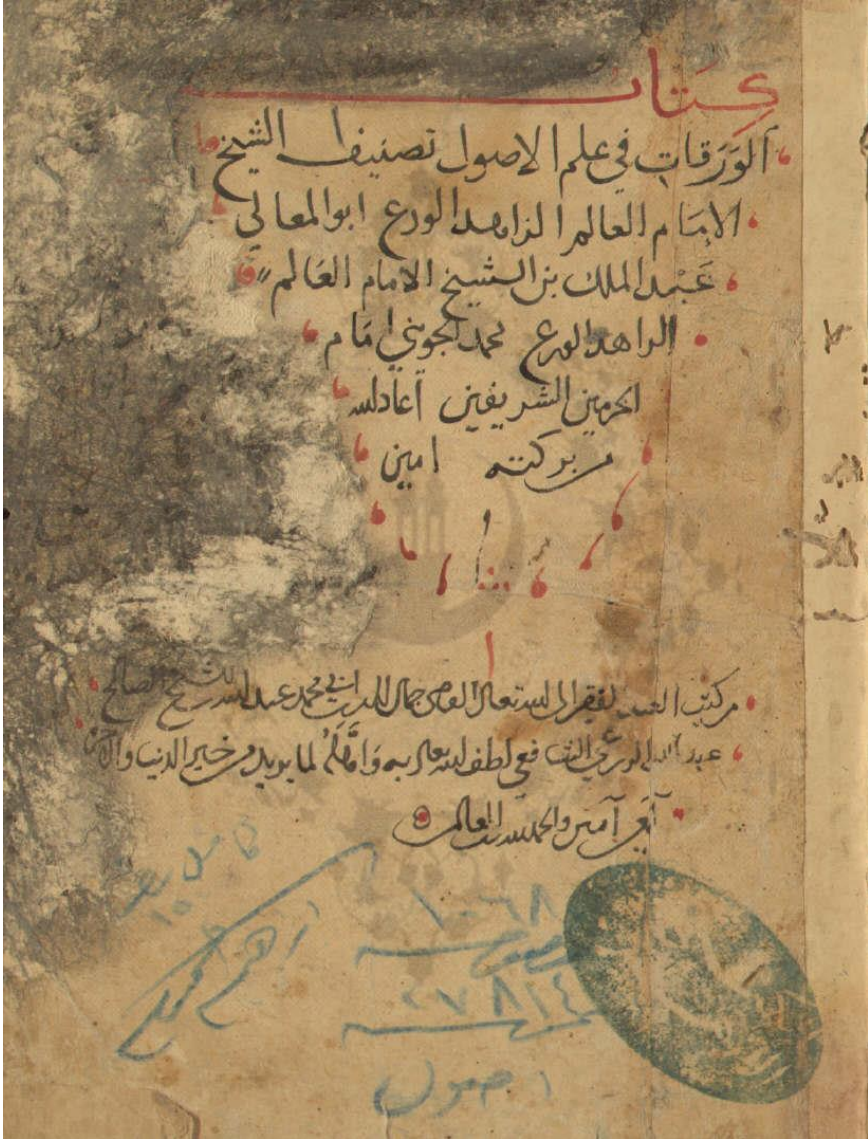 كتاب
الورقات في علم الاصول تصنيف الشيخ
الامام العالم الزاهد الورع ابو المعالي
عبد الملك بن الشيخ الامام العالم
الزاهد الورع محمد الجويني امام
الحرمين الشريفين اعاد الله
من بركته امين
من كتب العبد الفقير الى الله تعالى جمال الدين محمد عبد الله الشيخ الصالح
عبد الله الشافعي لطف الله تعالى به لما يريد من خير الدنيا
آمين والحمد لله رب العالمين
١٠٦٨
خصوصية
٢٧٨١٤
عمومية
اصول